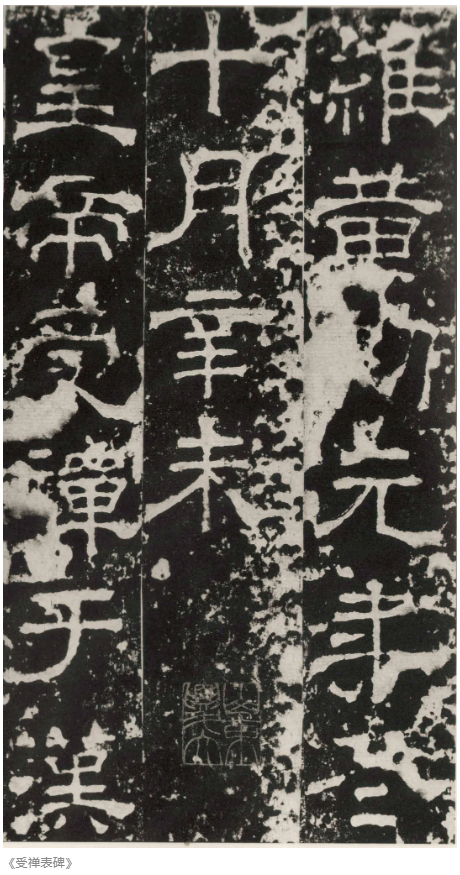 維黃初元年冬
十月辛未
皇帝受禪于漢
《受禅表碑》